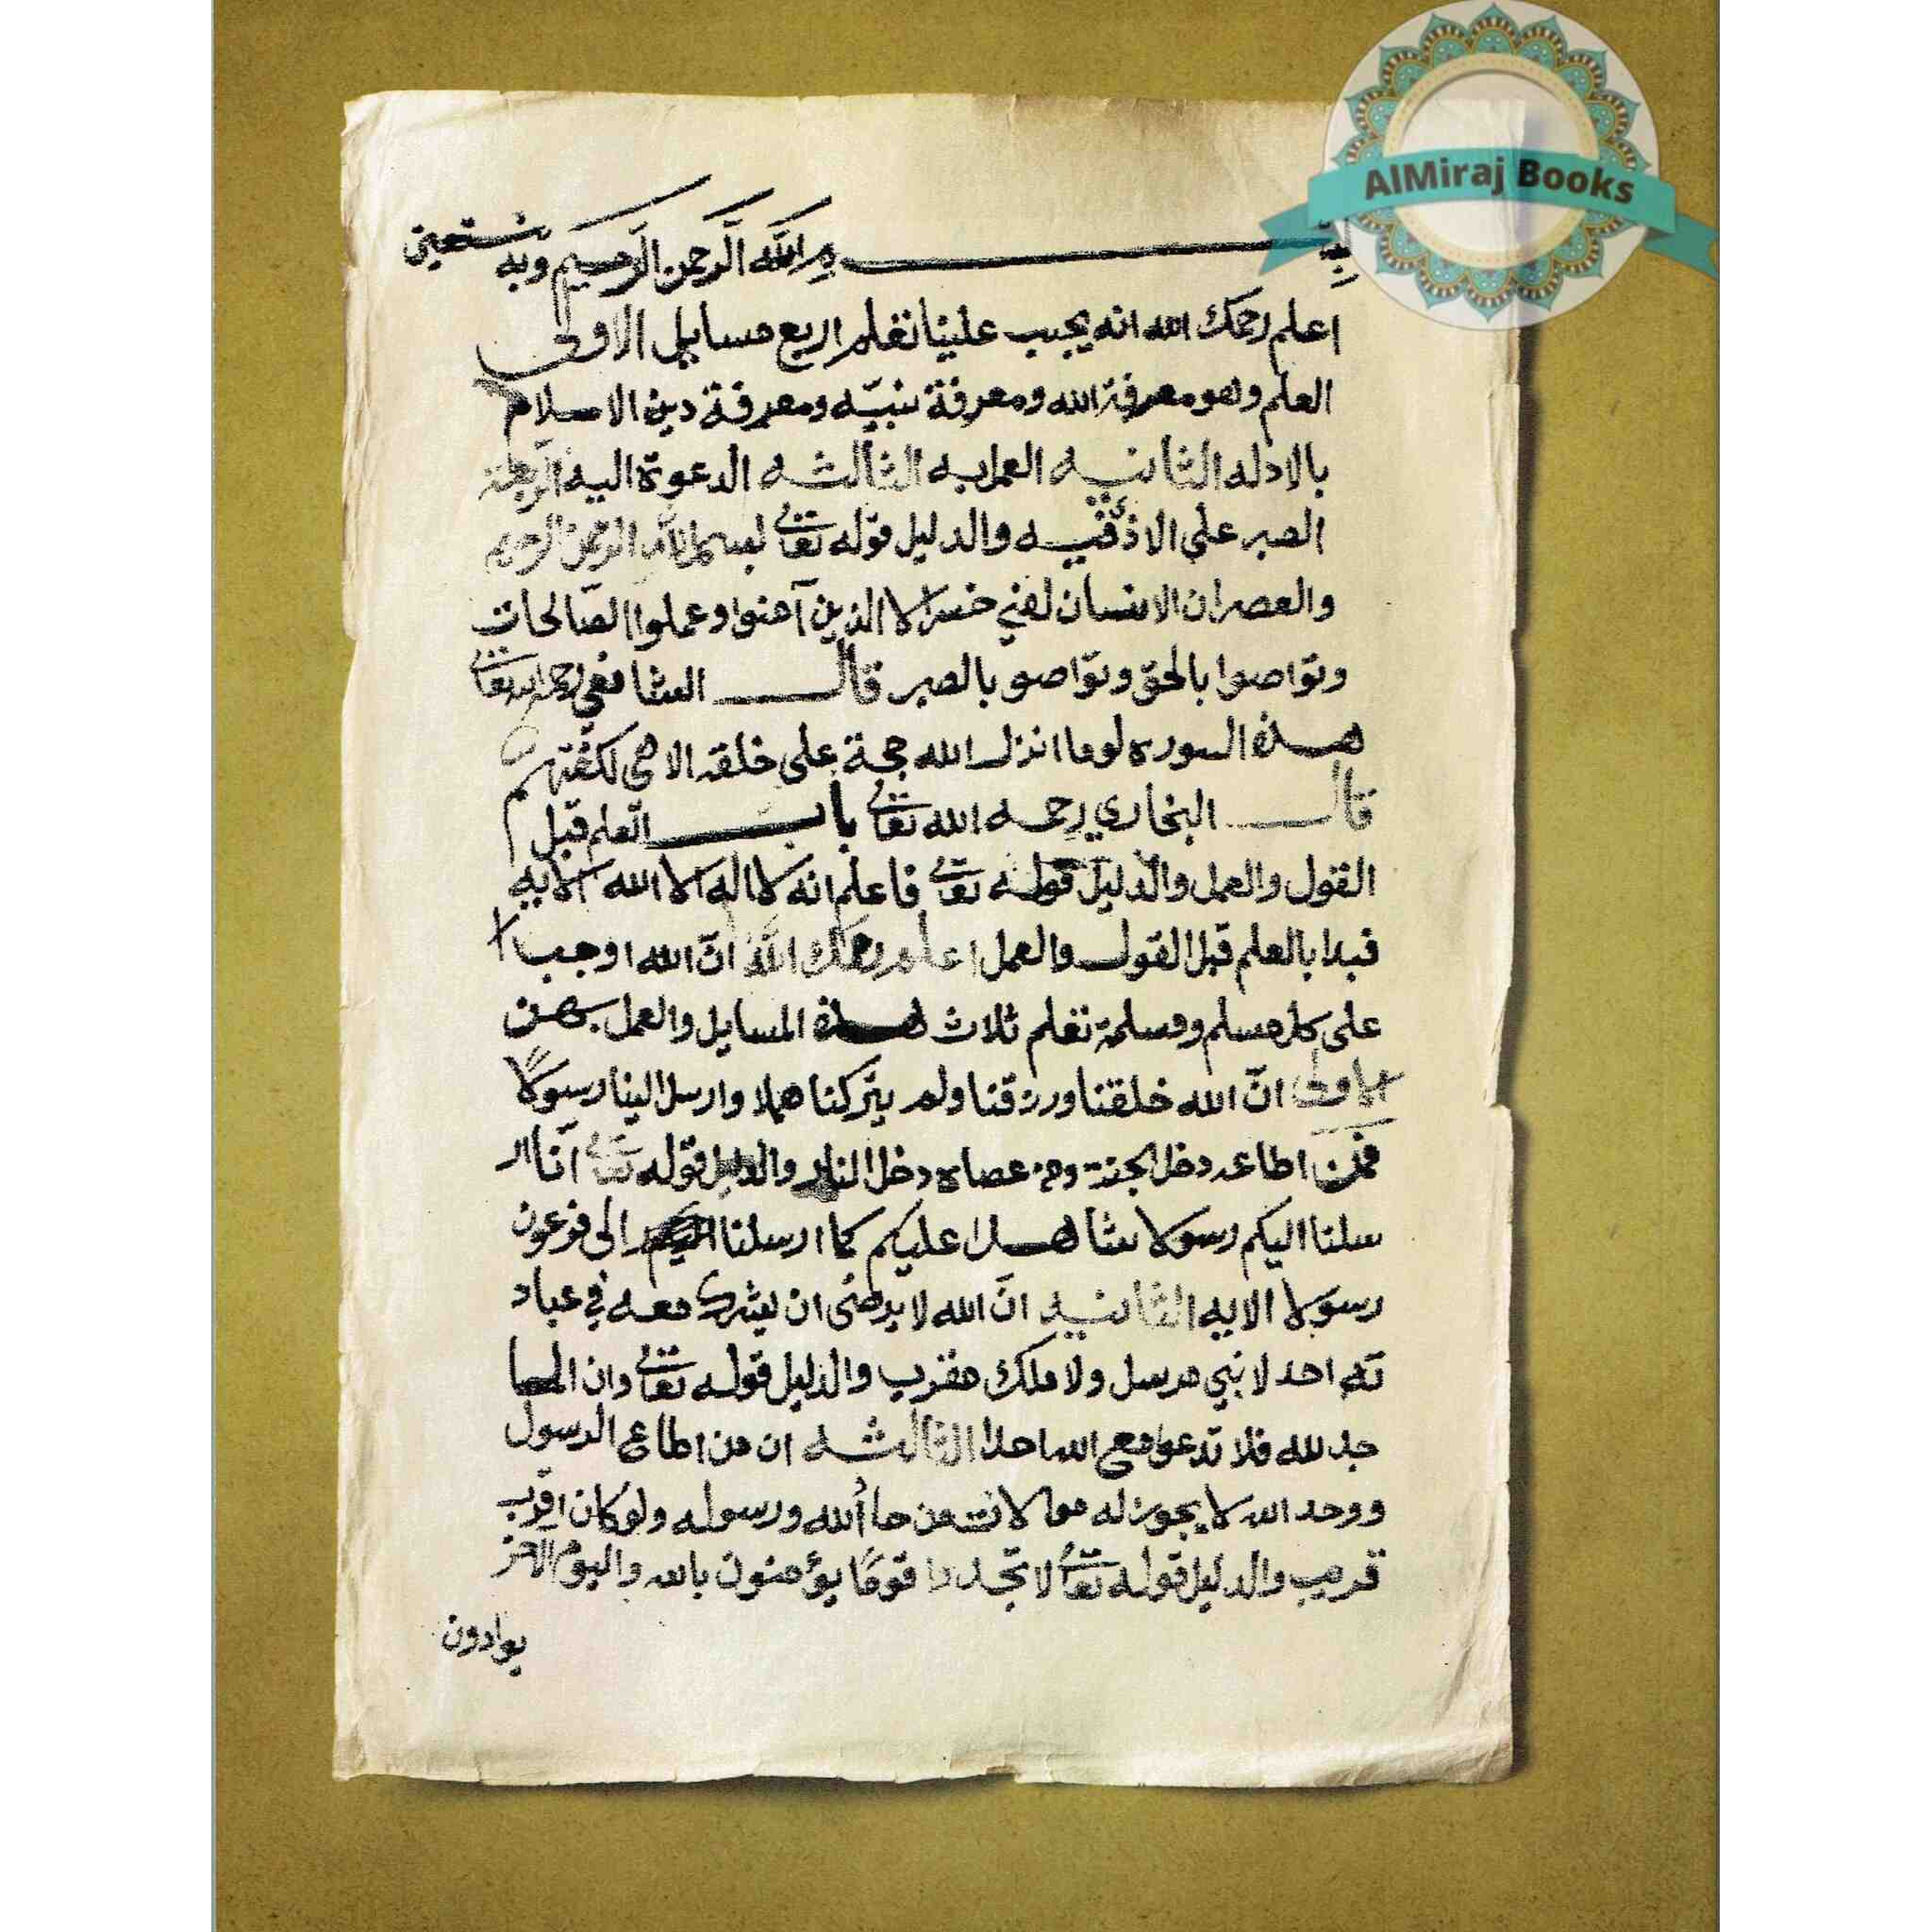 AlMiraj Books
بسم الله الرحمن الرحيم وبه نستعين
اعلم رحمك الله انه يجب علينا تعلم اربع مسايل الاولى
العلم وهو معرفة الله ومعرفة نبيّه ومعرفة دين الاسلام
بالادله الثانيه العمل به الثالثه الدعوة اليه الربعة
الصبر على الاذى فيه والدليل قوله تعالى بسم الله الرحمن الرحيم
والعصر ان الانسان لفي خسر الا الذين آمنوا وعملوا الصّالحات
وتواصوا بالحقّ وتواصو بالصبر قال الشافعي رحمه الله تعالى
هذه السوره لو ما انزل الله حجة على خلقه الا هي لكفتهم
قال البخاري رحمه الله تعالى باب العلم قبل
القول والعمل والدليل قوله تعالى فاعلم انه لا اله الا الله الايه
فبدا بالعلم قبل القول والعمل اعلم رحمك الله انّ الله اوجب
على كل مسلم ومسلمة تعلم ثلاث هذه المسايل والعمل بهن
الاولى انّ الله خلقنا ورزقنا ولم يتركنا هملا وارسل الينا رسولاً
فمن اطاعه دخل الجنة ومن عصاه دخل النار والدليل قوله تعالى انّا ار
سلنا اليكم رسولا شاهدا عليكم كما ارسلنا الى فرعون
رسولا الايه الثانيه انّ الله لا يرضى ان يشرك معه في عباد
ته احد لا نبي مرسل ولا ملك مقرب والدليل قوله تعالى وان المسا
جد لله فلا تدعوا مع الله احدا الثالثه ان من اطاع الرسول
ووحد الله لا يجوز له موالات من حاد الله ورسوله ولو كان اقرب
قريب والدليل قوله تعالى لا تجد قومًا يؤمنون بالله واليوم الاخر
يوادون